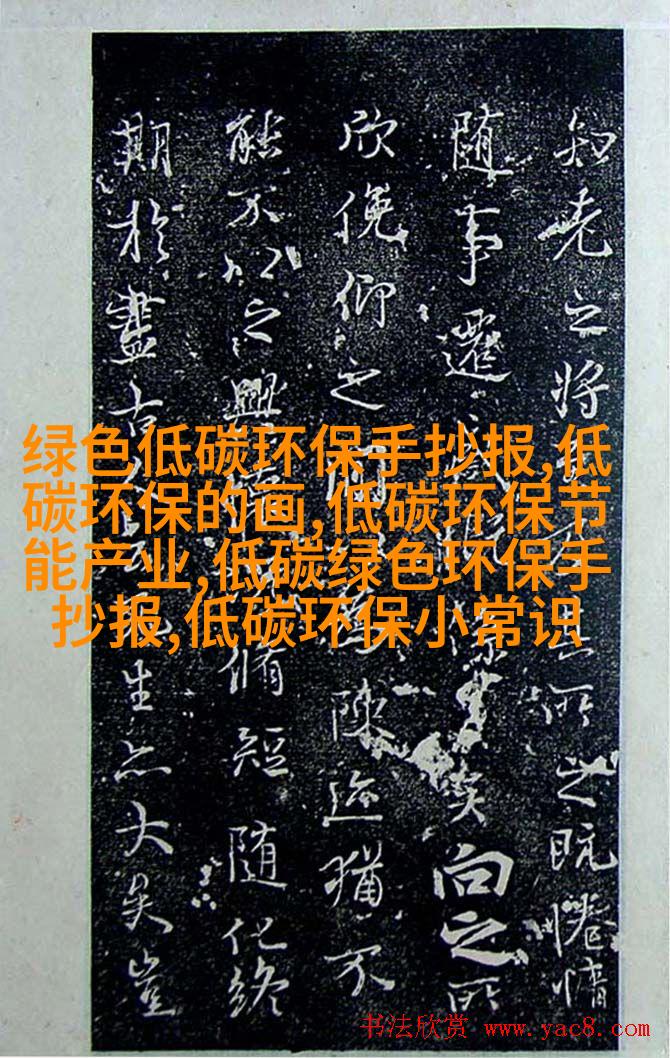 知老之将所之既惓情
随事遷感係之矣向之所
欣俛仰之間為陳迹猶不
能不以之興脩短随化終
期於盡古人云死生亦大矣豈
绿色低碳环保手抄报,低
碳环保的画,低碳环保节
能产业,低碳绿色环保手
抄报,低碳环保小常识
书法欣赏 www.yac8.com